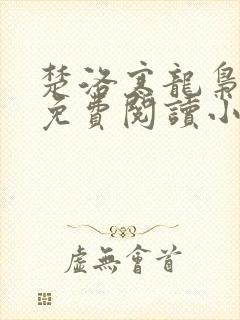 楚洛寒龍梟
免費閱讀小
虛無會首